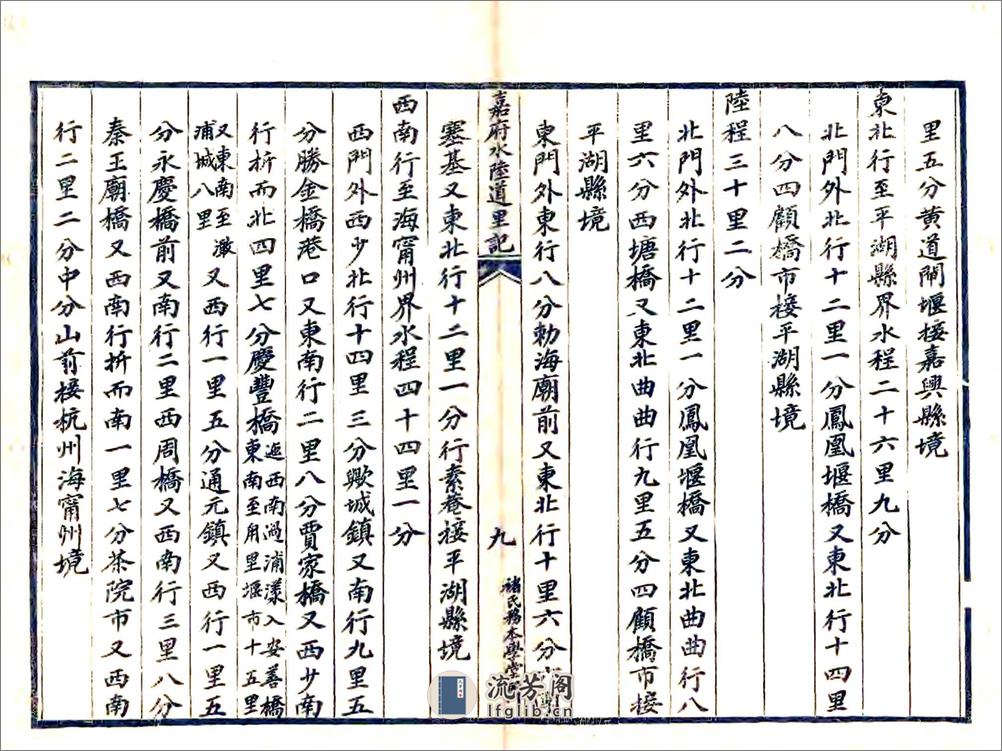 里五分黄道閘堰接嘉興縣境
東北行至平湖縣界水程二十六里九分
北門外北行十二里一分鳳凰堰橋又東北行十四里
八分四顧橋市接平湖縣境
陸程三十里二分
北門外北行十二里一分鳳凰堰橋又東北曲曲行八
里六分西塘橋又東北曲曲行九里五分四顧橋市接
平湖縣境
東門外東行八分勅海廟前又東北行十里六分
嘉府水陸道里記
九
褚民務本學堂
塞基又東北行十二里一分行素菴接平湖縣境
西南行至海甯州界水程四十四里一分
西門外西少北行十四里三分歟城鎮又南行九里五
分勝金橋港口又東南行二里八分賈家橋又西少南
行折而北四里七分慶豐橋迤西南過浦漾入安善橋
東南至甪里堰市十五里
又東南至澉
浦城八里又西行一里五分通元鎮又西行一里五
分永慶橋前又南行二里西周橋又西南行三里八分
秦王廟橋又西南行折而南一里七分茶院市又西南
行二里二分中分山前接杭州海甯州境
流芳閣
lfglib.cn